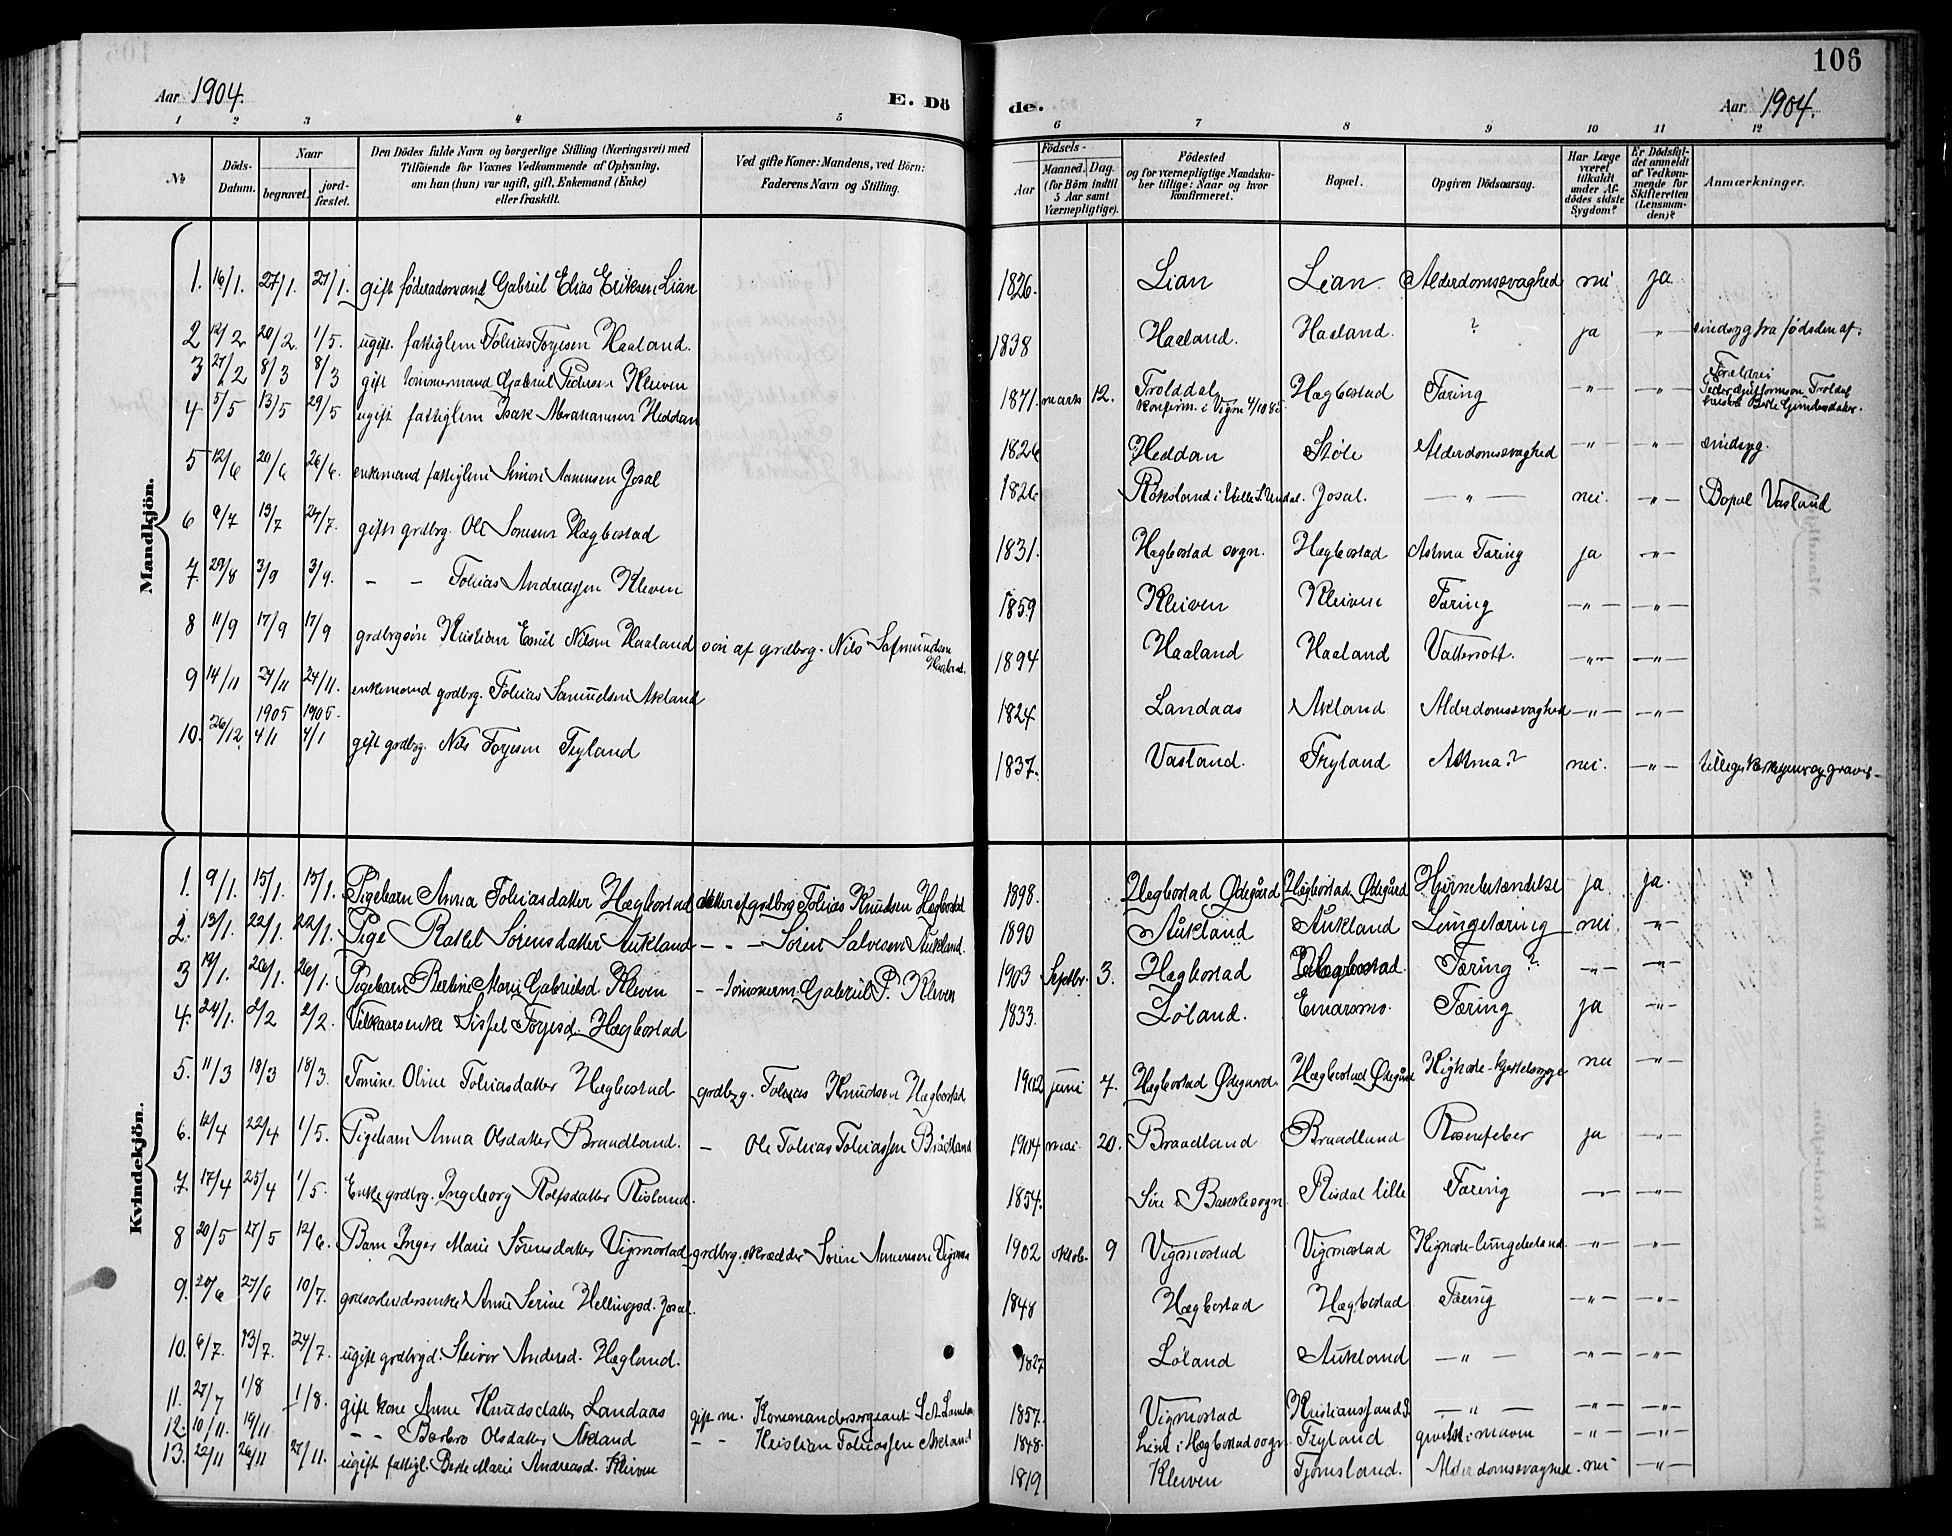 106
Aar 1904.
E. Dö
de.
Aar 1904.
1 2 3 4 5
6 7 8 9 10 11 12
№
Döds-
Datum.
Naar
begravet.
jord-
fæstet.
Den Dödes fulde Navn og borgerlige Stilling (Næringsvei) med
Tilföiende for Voxnes Vedkommende af Oplysning,
om han (hun) var ugift, gift, Enkemand (Enke)
eller fraskilt.
Ved gifte Koner: Mandens, ved Börn:
Faderens Navn og Stilling.
Födsels-
Aar
Maaned. Dag.
(for Börn indtil
5 Aar samt
Værnepligtige).
Födested
og for værnepligtige Mandsku-
ber tillige: Naar og hvor
konfirmeret.
Bopæl.
Opgiven Dödsaarsag.
Har Læge
været
tilkaldt
under Af-
dödes sidste
Sygdom?
Er Dödsfal-
det anmeldt
af Vedkom-
mende for
Skifteretten
(Lensman-
den)?
Anmærkninger.
Mandkjön.
1. 16/1. 27/1. 27/1. gift föderaadsmand Gabriel Elias Eriksen Lian 1826. Lian Lian. Alderdomssvaghed nei ja
2 12/2 20/2. 1/5. ugift. fattiglem Tobias Torjesen Haaland. 1838 Haaland. Haaland. ? ja -"- sindssyg fra födselen af.
3 27/2 8/3 8/3 gift tömmermand Gabriel Pedersen Kleiven 1871. marts 12. Trolddal Hægbostad Tæring -"- -"- Forældre:
konfirm. i Vigm 4/10 85
4 5/5 13/5 29/5 ugift fattiglem Isak Abrahamsen Heddan 1826 Heddan Støle Alderdomssvaghed -"- -"- sindssyg.
5 12/6 20/6 26/6. enkemand fattiglem Simon Aanensen Josal 1826 Josal. -"- nei. -"- Bopæl Vasland
6 9/7 13/7 24/7. gift grdbrg. Ole Sörensen Hægbostad 1831. Hægbostad sogn. Hægbostad Astma Tæring ja -"-
7. 29/8 3/9 3/9. - - Tobias Andreassen Kleven 1859 Kleiven Kleiven Tæring -"- -"-
8 11/9 17/9 17/9 grdbrgsön Kristian Emil Nilsen Haaland sön af grdbrg. Nils Salmundsen
Haaland. 1894 Haaland Haaland Vattersott. -"- -"-
9 14/11 24/11 24/11. enkemand grdbrg. Tobias Samuelsen Akland 1824 Landaas Akland Alderdomssvaghed -"- -"-
1905 1905
10. 26/12. 4/1 4/1 gift grdbrg. Nils Torjesen Fryland 1837. Vasland. Fryland Astma? nei. -"-
Kvindekjön.
1. 9/1. 15/1. 15/1. Pigebarn Anna Tobiasdatter Hægbostad datter af grdbrg Tobias Knudsen Hægbostad 1898. Hægbostad Ødegård Hægbostad Ødegård Hjernebetændelse ja ja.
2. 13/1. 22/1. 22/1. Pige Rakel Sørensdatter Aukland - - - Sören Salvesen Aukland. 1890 Aukland Aukland Lungetæring nei. -"-
3 19/1. 26/1. 26/1. Pigebarn Bertine Marie Gabrielsd. Kleven - - tömmerm. Gabriel P. Kleven 1903 Septbr. 3. Hægbostad Hægbostad. Tæring? -"- -"-
4. 24/1. 2/2 2/2. Vilkaarsenke Sissel Torjesd. Hægbostad 1833. Løland. Tæring ja -"-
5. 11/3 18/3 18/3. Tomine Oline Tobiasdatter Hægbostad grdbrg. Tobias Knudsen Hægbostad 1902 juni 7. Hægbostad Ødegaard. Hægbostad Ødegård nei -"-
6. 12/4 22/4 1/5. Pigebarn Anna Olsdatter Braadland. - Ole Tobias Tobiassen Brådland 1904 mai 20. Braadland Braadland Rosenfeber ja -"-
7. 17/4 25/4 1/5. Enke grdbrg. Ingeborg Rolfsdatter Risland. 1854. Sire i Bakke sogn Risdal lille Tæring -"- -"-
8 20/5 27/5 12/6. Barn Inger Marie Sörensdatter Vigmostad grdbrg. skrædder Sören Annensen Vigmos 1902 oktob. 9 Vigmostad Vigmostad -"- -"-
9. 20/6 27/6 10/7. gardsarbeidersenke Anne Serine Hellingsd. Josal. 1848 Hægbostad Hægbostad Tæring -"- -"-
10. 6/7. 13/7. 24/7. ugift grdbrgd. Steivor Andersd. Hægland. 1827 Løland Aukland -"- -"- -"-
11. 27/7 1/8 1/8. gift kone Anne Knudsdatter Landaas gift m. Kommandersergeant 1857. Vigmostad Kristianssand S. -"- -"- -"-
12. 10/11. 19/11 - - Barbro Olsdatter Akland - - Kristian Tobiassen Akland 1848. i Hægbostad sogn. Fryland -"- -"-
13. 22/11 26/11 27/11. ugift fattigl. Berte Marie Andreasd. Kleiven 1819 Kleiven Tjomsland. Alderdomssvaghed. nei -"-